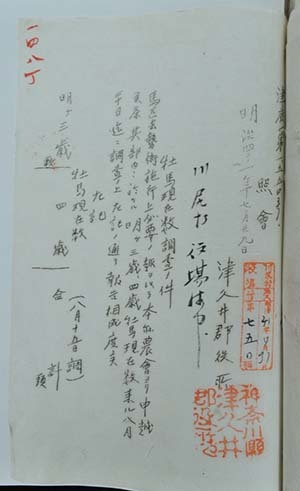 照會
明治四十一年七月廿九日
津久井郡役所
川尻村役場御中
牡馬現在数調査ノ件
馬匹去勢術施行上必要ノ趣ヲ以テ本縣農會ヨリ申越
候条其部内ニ於ケル明ケ三歳、四歳牡馬現在数来ル八月
十日迄ニ調査シ左記ノ通リ報告相成度候
左記
牡馬現在数 (八月十五日調)
明ケ三歳
四歳
合計
頭
神奈川縣
津久井
郡役所
一四八丁